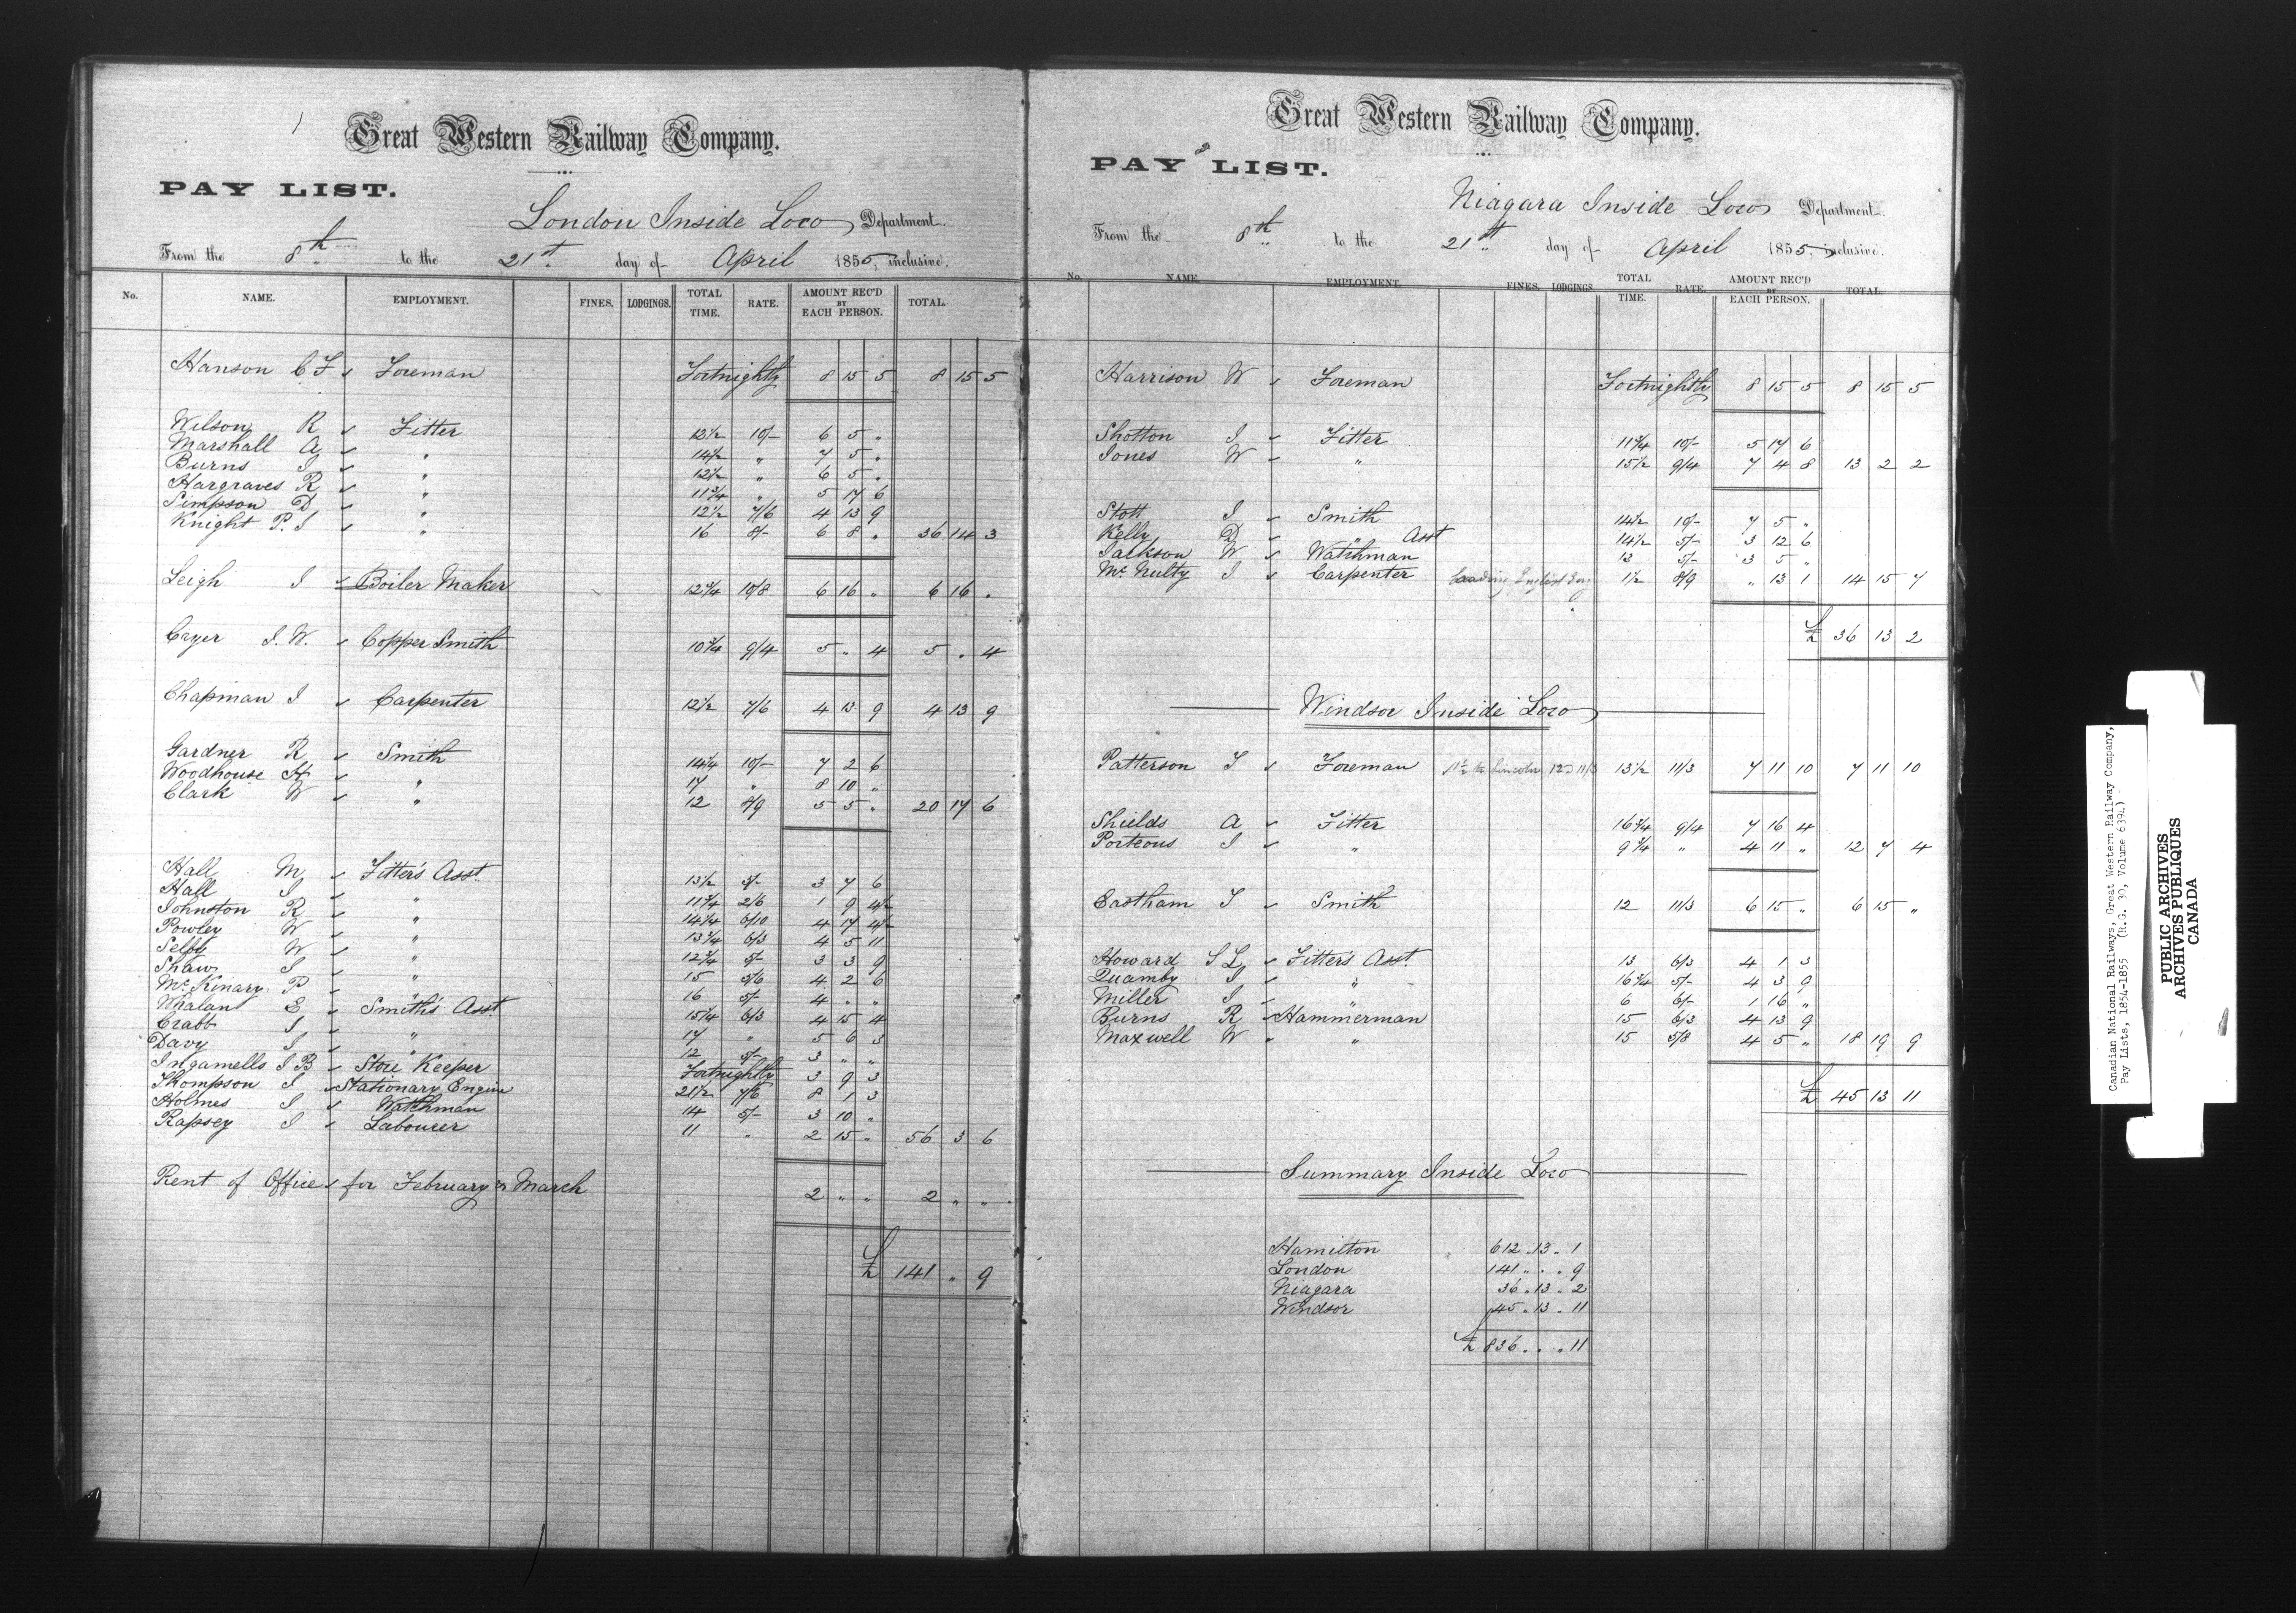 Great Western Railway Company.
PAY LIST.
London Inside Loco Department.
From the 8th to the 21st day of April 1855, inclusive.
No. NAME. EMPLOYMENT. FINES. LODGINGS. TOTAL TIME. RATE. AMOUNT REC'D BY EACH PERSON. TOTAL.
Hanson C F Foreman Fortnightly 8 15 5 8 15 5
Wilson R Fitter 12½ 10/- 6 5 "
Marshall A " 14½ " 7 5 "
Burns J " 12½ " 6 5 "
Hargraves R " 11¾ " 5 17 6
Simpson D " 12½ 7/6 4 13 9
Knight P. J " 16 8/- 6 8 " 36 14 3
Leigh J Boiler Maker 12¾ 10/8 6 16 " 6 16 "
Cryer J. W. Copper Smith 10¾ 9/4 5 " 4 5 " 4
Chapman J Carpenter 12½ 7/6 4 13 9 4 13 9
Gardner R Smith 14¼ 10/- 7 2 6
Woodhouse H " 17 " 8 10 "
Clark W " 12 8/9 5 5 " 20 17 6
Hall M Fitter's Asst. 13½ 5/- 3 7 6
Hall J " 11¾ 2/6 1 9 4½
Johnston R " 14¼ 6/10 4 17 4½
Powley W " 13¾ 6/3 4 5 11
Selby W " 12¾ 5/- 3 3 9
Shaw J " 15 5/6 4 2 6
McKinary P " 16 5/- 4 " "
Whalant E Smith's Asst. 15¼ 6/3 4 15 4
Crabb J " 17 " 5 6 3
Davy J " 12 5/- 3 " "
Ingamells J B Store Keeper Fortnightly 3 9 3
Thompson J Stationary Engine 21½ 7/6 8 1 3
Holmes J Watchman 14 5/- 3 10 "
Rapsey J Labourer 11 " 2 15 " 56 3 6
Rent of Offices for February & March 2 " " 2 " "
£ 141 " 9
Great Western Railway Company.
PAY LIST.
Niagara Inside Loco Department.
From the 8th to the 21st day of April 1855. inclusive.
No. NAME. EMPLOYMENT. FINES. LODGINGS. TOTAL TIME. RATE. AMOUNT REC'D BY EACH PERSON. TOTAL
Harrison W Foreman Fortnightly 8 15 5 8 15 5
Shotton J Fitter 11¾ 10/- 5 17 6
Jones W " 15½ 9/4 7 4 8 13 2 2
Stott J Smith 14½ 10/- 7 5 "
Kelly D " Asst 14½ 5/- 3 12 6
Jackson W Watchman 13 5/- 3 5 "
McNulty J Carpenter 1½ 8/9 " 13 1 14 15 7
£ 36 13 2
Windsor Inside Loco
Patterson T Foreman 13½ 11/3 7 11 10 7 11 10
Shields A Fitter 16¾ 9/4 7 16 4
Porteous J " 9¾ " 4 11 " 12 7 4
Eastham T Smith 12 11/3 6 15 " 6 15 "
Howard S L Fitter's Asst. 13 6/3 4 1 3
Quamby J " 16¾ 5/- 4 3 9
Miller J " 6 6/- 1 16 "
Burns R Hammerman 15 6/3 4 13 9
Maxwell W " 15 5/8 4 5 " 18 19 9
£ 45 13 11
Summary Inside Loco
Hamilton 612 . 13 . 1
London 141 . " . 9
Niagara 36 . 13 . 2
Windsor 45 . 13 . 11
£ 836 . . . 11
Canadian National Railways, Great Western Railway Company,
Pay Lists, 1854-1855 (R.G. 30, Volume 6394)
PUBLIC ARCHIVES
ARCHIVES PUBLIQUES
CANADA